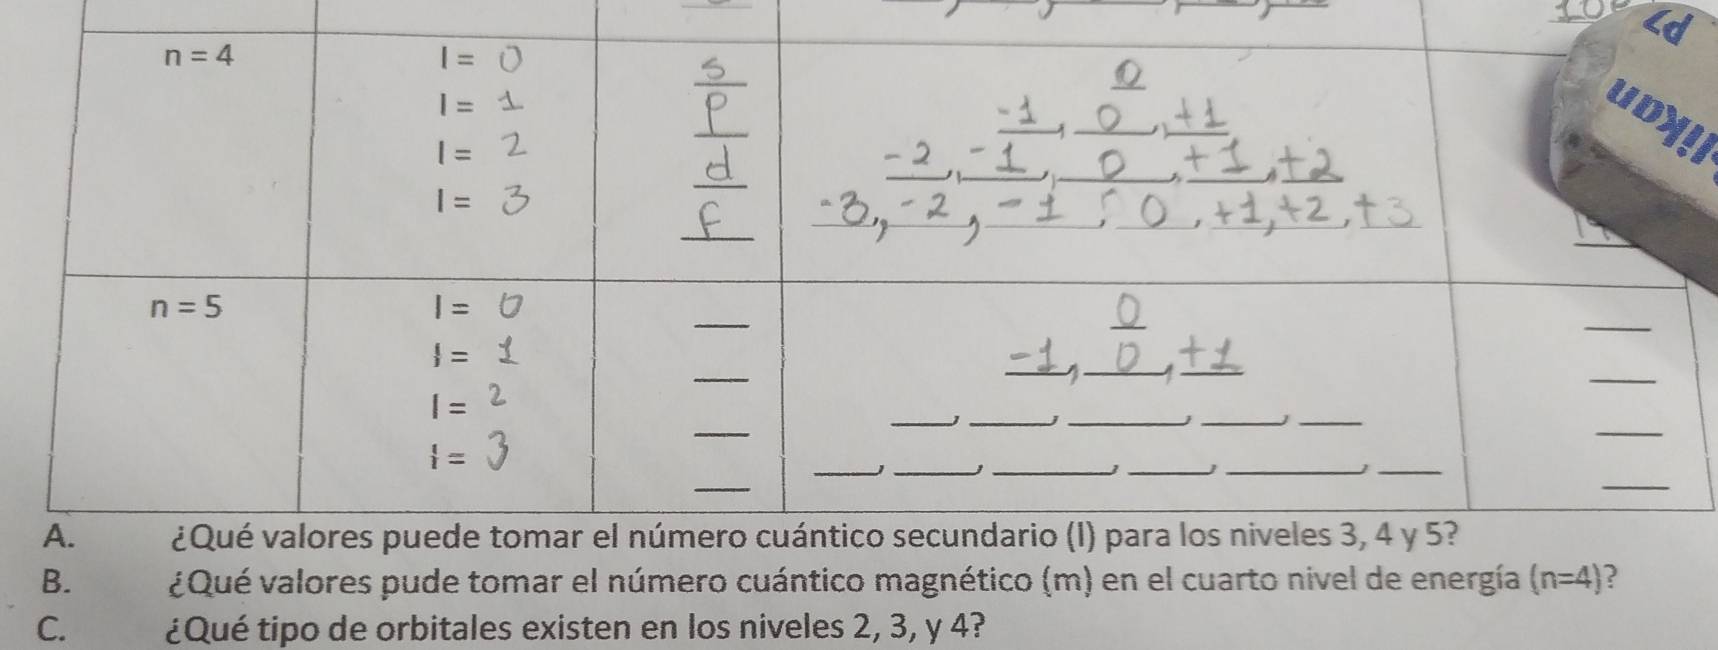 n = 4
l = 0
s
0
l = 1
p
-1, 0, +1
l = 2
d
-2, -1, 0, +1, +2
l = 3
f
-3, -2, -1, 0, +1, +2, +3
P7
likan
n = 5
l = 0
0
l = 1
-1, 0, +1
l = 2
l = 3
A. ¿Qué valores puede tomar el número cuántico secundario (l) para los niveles 3, 4 y 5?
B. ¿Qué valores pude tomar el número cuántico magnético (m) en el cuarto nivel de energía (n=4)?
C. ¿Qué tipo de orbitales existen en los niveles 2, 3, y 4?